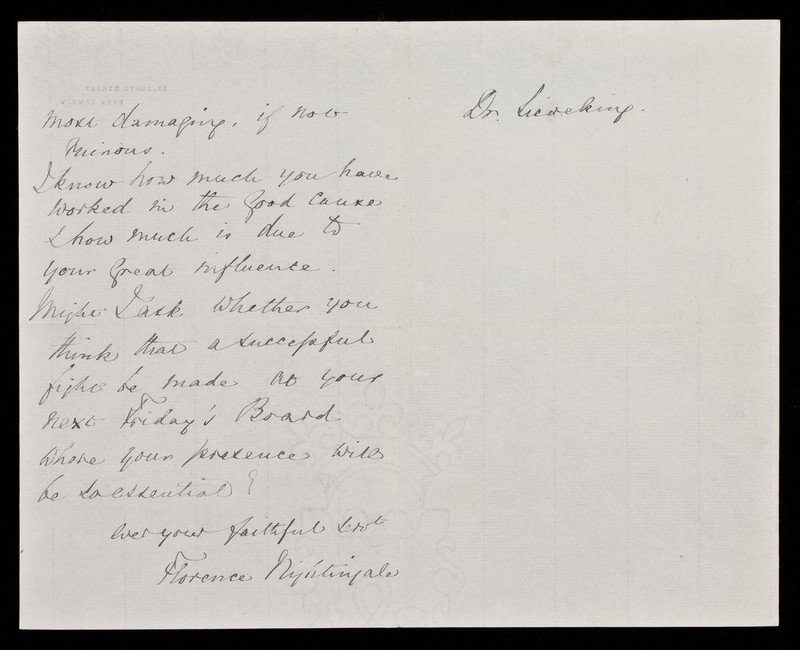 most damaging, if not
ruinous.
I know how much you have
worked in the good cause
& how much is due to
your great influence.
Might I ask whether you
think that a successful
fight be made at your
next Friday's Board
where your presence will
be so essential?
ever your faithful servt
Florence Nightingale
Dr. Sieveking.